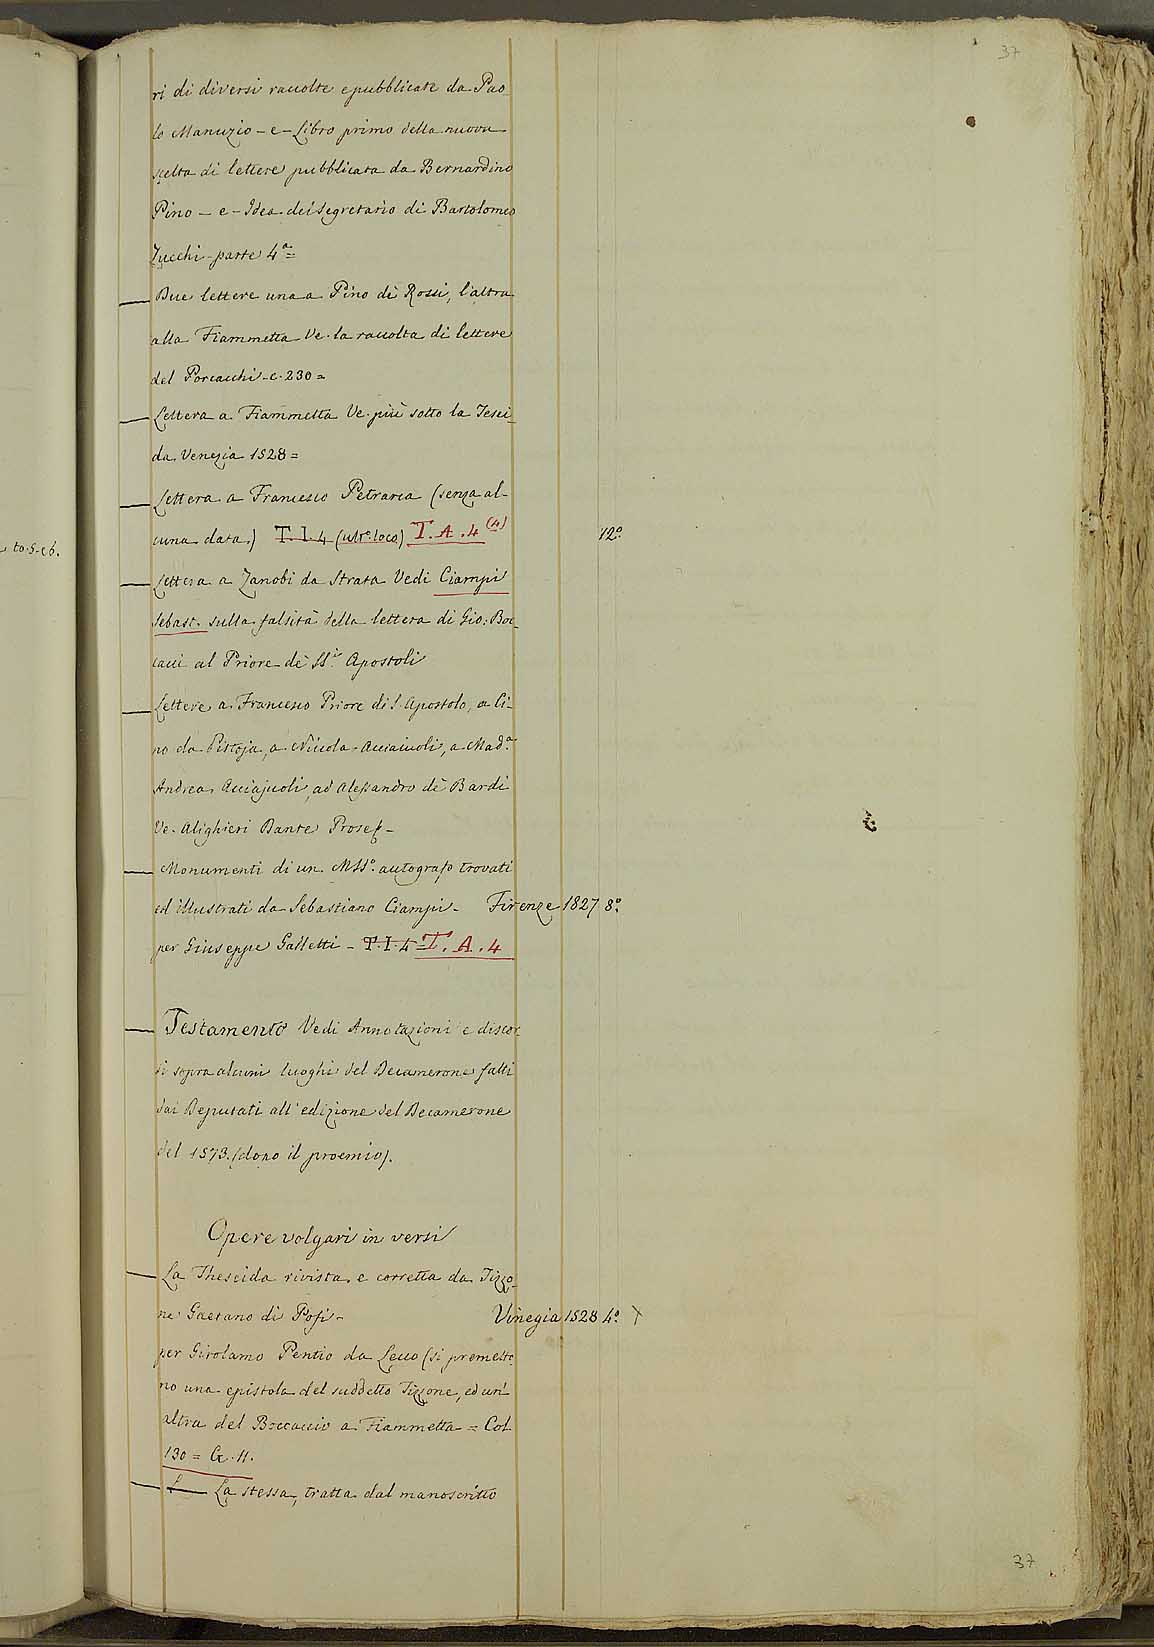 37
ri di diversi raccolte e pubblicate da Pao
lo Manuzio - e - Libro primo della nuova
scelta di lettere pubblicata da Bernardino
Pino - e - Idea del Segretario di Bartolomeo
Zucchi - parte 4ª =
Due lettere una a Pino dè Rossi, l'altra
alla Fiammetta Ve. la raccolta di lettere
del Porcacchi - c. 230 =
Lettera a Fiammetta Ve. più sotto la Tesei_
da Venezia 1528 =
Lettera a Francesco Petrarca (senza al-
cuna data.) T. I. 4 (altº. loco) T. A. 4 (4) 12º.
to. 5. c 6.
Lettera a Zanobi da Strata Vedi Ciampi
Sebast. sulla falsità della lettera di Gio: Boc_
cacci al Priore dè SS.i Apostoli
Lettere a Francesco Priore di S. Apostolo, a Ci-
no da Pistoja, a Niccola Acciaiuoli, a Mad.ª
Andrea Acciajuoli, ad Alessandro dè Bardi
Ve. Alighieri Dante Prose -
Monumenti di un MSSº. autografo trovati
ed illustrati da Sebastiano Ciampi - Firenze 1827 8º.
per Giuseppe Galletti - T. I. 4 = T. A. 4
Testamento Vedi Annotazioni e discor
si sopra alcuni luoghi del Decamerone fatti
dai Deputati all'edizione del Decamerone
del 1573. (dopo il proemio).
Opere volgari in versi
La Theseida rivista e corretta da Tizzo_
ne Gaetano di Pofi - Vinegia 1528 4º. X
per Girolamo Pentio da Lecco (si premetto
no una epistola del suddetto Tizzone, ed un'
altra del Boccaccio a Fiammetta = Col
130 = G. 11.
L La stessa, tratta dal manoscritto
37